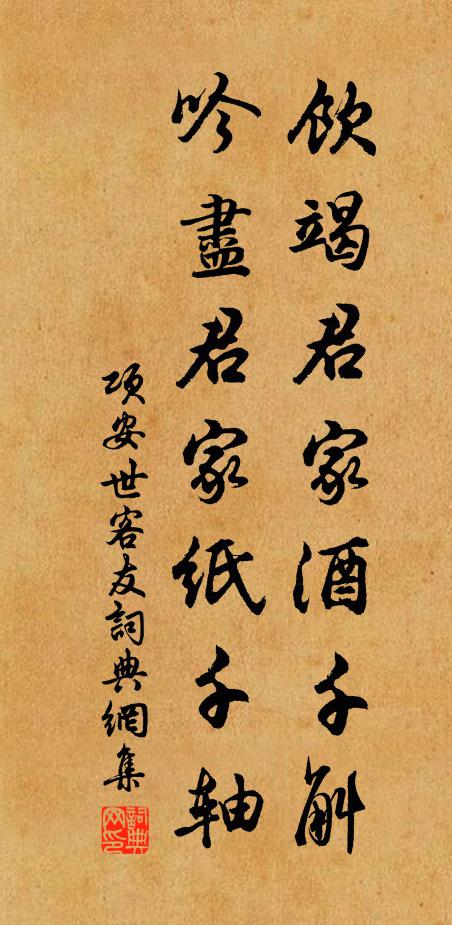 飲竭君家酒千斛
吟盡君家紙千軸
項安世客友詞典網集
詞典網印